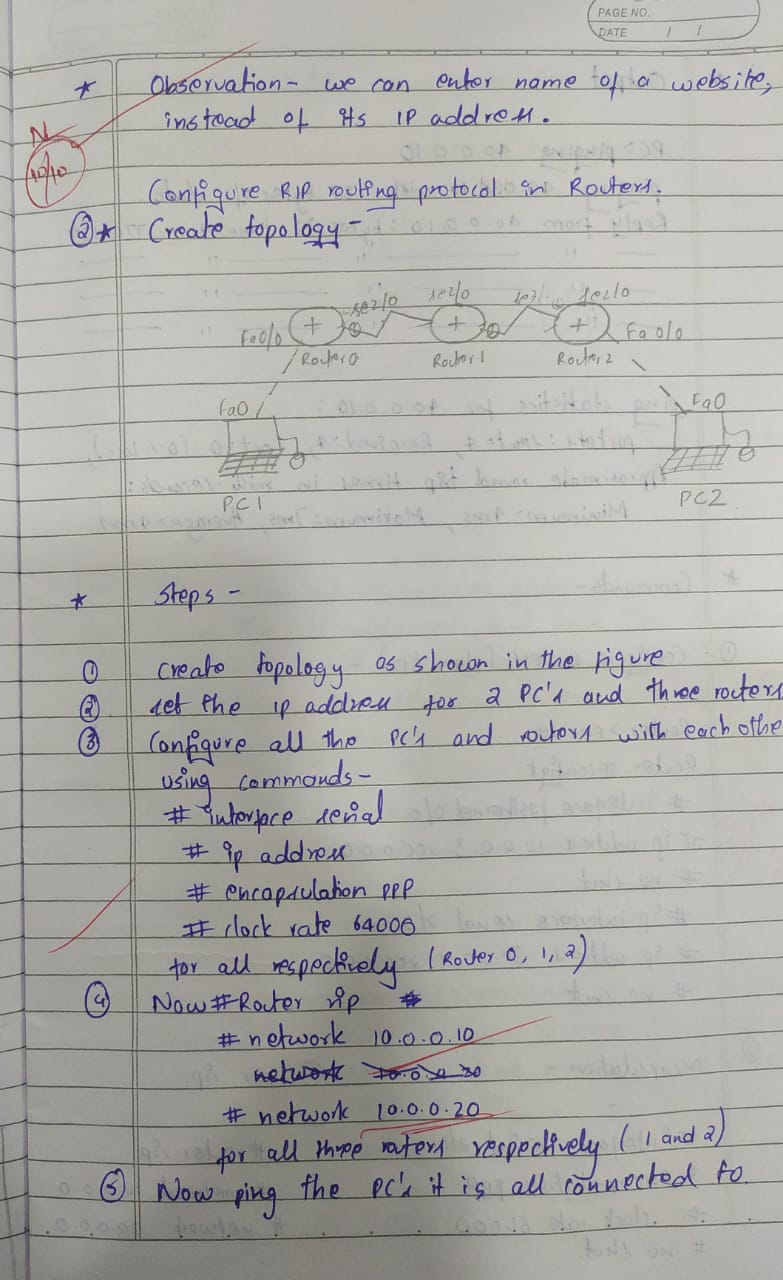 PAGE NO.
DATE / /
* Observation - we can enter name of a website,
instead of its IP address.
N
10/10
Configure RIP routing protocol in Routers.
② * Create topology -
se2/0 se2/0 se3/ se2/0
Fa0/0 Fa 0/0
Router0 Router1 Router2
Fa0 Fa0
PC1 PC2
* Steps -
① Create topology as shown in the figure
② set the ip address for 2 PC's and three roters
③ Configure all the PC's and routers with each othe
using commands -
# interface serial
# ip address
# encapsulation ppp
# clock rate 64000
for all respectively (Router 0, 1, 2)
④ Now # Router rip
# network 10.0.0.10
network
# network 10.0.0.20
for all three raters respectively (1 and 2)
⑤ Now ping the PC's it is all connected to.